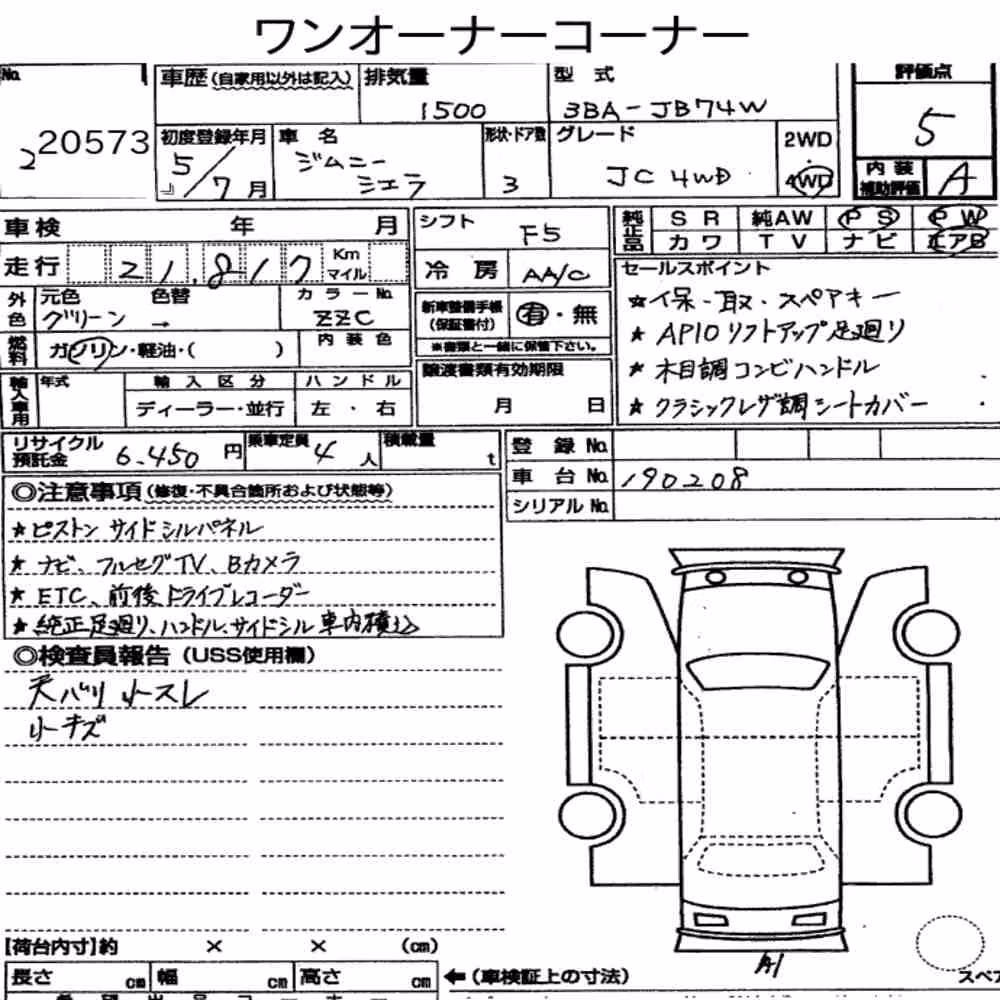 ワンオーナーコーナー
No. 車歴 (自家用以外は記入) 排気量 1500 型式 3BA-JB74W 評価点 5
2 20573 初度登録年月 5/7月 車名 ジムニーシエラ 形状・ドア数 3 グレード JC 4WD 2WD 4WD 内装補助評価 A
車検 年 月 シフト F5 純正品 SR 純AW PS PW
カワ TV ナビ エアB
走行 21,817 Km マイル 冷房 AA/C セールスポイント
外色 元色 グリーン 色替 → カラーNo. ZZC 新車整備手帳 (保証書付) 有・無 ★保・取・スペアキー
燃料 ガソリン・軽油・( ) 内装色 ※書類と一緒に保管下さい。 ★APIOリフトアップ足廻り
輸入車用 年式 輸入区分 ハンドル 譲渡書類有効期限 ★木目調コンビハンドル
ディーラー・並行 左・右 月 日 ★クラシックレザ調シートカバー
リサイクル預託金 6.450円 乗車定員 4人 積載量 t 登録No.
車台No. 190208
◎注意事項 (修復・不具合箇所および状態等) シリアルNo.
★ピストン サイドシルパネル
★ナビ、フルセグTV、Bカメラ
★ETC、前後ドライブレコーダー
★純正足廻り、ハンドル、サイドシル車内積込
◎検査員報告 (USS使用欄)
天バリ小スレ
小キズ
【荷台内寸】約 × × (cm)
A1
長さ cm 幅 cm 高さ cm ←(車検証上の寸法) スペア